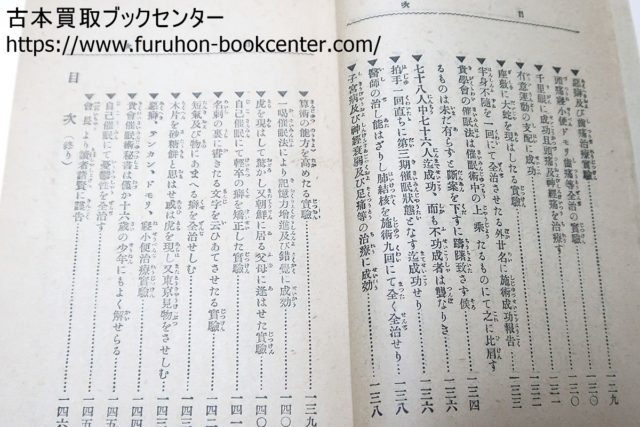 古本買取ブックセンター
https://www.furuhon-bookcenter.com/
目次
▼頭痛、小便、ドモリ、歯痛等全治の實驗
▼千里眼に成功且頭痛及神經痛を治す
▼有意運動の支配に成功
▼座嶽に大蛇を現はしたる實驗
▼半身不隨を一回にて全治させたる外廿名に施術成功報告
▼貴學會の催眠法は催眠術中の上乘たるものにて之に比肩す
るものは未だ有らすと斷案を下すに躊躇致さす候……一三四
▼七十八人中七十六人迄成功、而も不功成者は聾なりき……一三六
▼拍手一回直ちに第三期催眠狀態となす迄成功せり……一三六
▼醫師の治し能はざりし肺結核を施術九回にて全く全治せり……一三八
▼子宮病及び神經衰弱及び足痛等の治療に成効……一三八
▼算術の能力を高めたる實驗……一三九
▼一喝催眠法により記憶力增進及び錯覺に成効……一四〇
▼虎を現はして驚かし又朝鮮に居る父母に逢はせた實驗……一四〇
▼自己催眠にて輕卒の癖を矯正した實驗……一四一
▼名刺の裏に書きたる文字を云ひあてさせたる實驗
▼短氣及び物にあまへる癖を全治せしむ
▼木片を砂糖餅と思はせ或は虎を現し又東京見物をさせしむ
▼惡癖、テンカン、ドモリ、寢小便治療實驗
▼貴會催眠術秘書は僅か十六歲の少年にもよく解せらる
▼自己催眠にて憂鬱性を全治す
▼會長より讀者諸賢に證告……一四六
目次（終り）